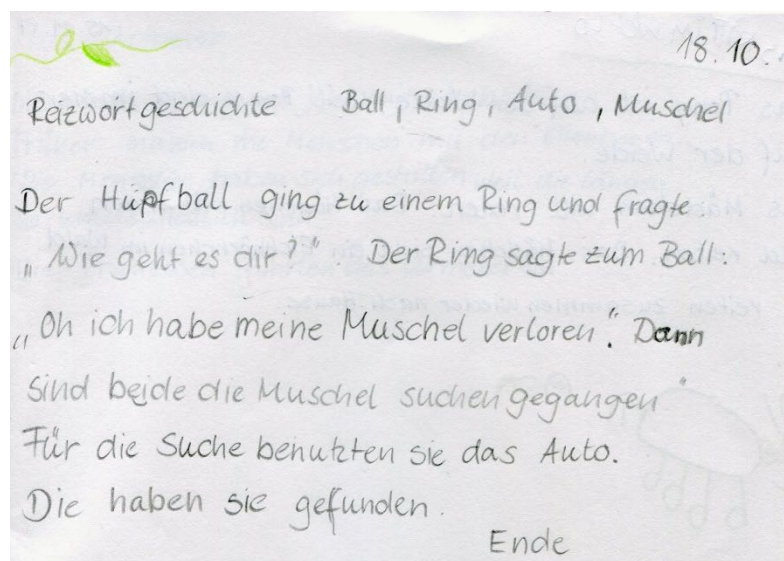 18.10.
Reizwortgeschichte Ball, Ring, Auto, Muschel
Der Hüpfball ging zu einem Ring und fragte
„Wie geht es dir?“ Der Ring sagte zum Ball:
„Oh ich habe meine Muschel verloren“. Dann
sind beide die Muschel suchen gegangen“
Für die Suche benutzten sie das Auto.
Die haben sie gefunden.
Ende